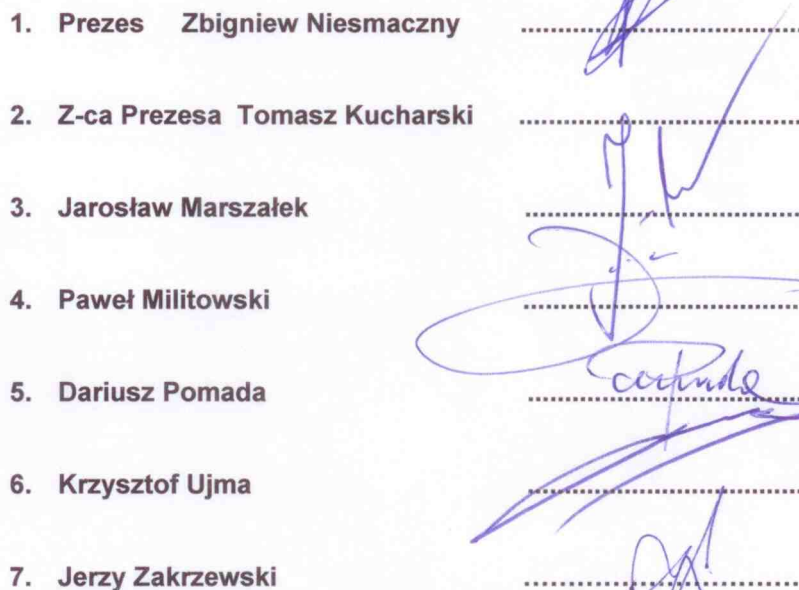 1. Prezes Zbigniew Niesmaczny ........................
2. Z-ca Prezesa Tomasz Kucharski ........................
3. Jarosław Marszałek ........................
4. Paweł Militowski ........................
5. Dariusz Pomada ........................
6. Krzysztof Ujma ........................
7. Jerzy Zakrzewski ........................